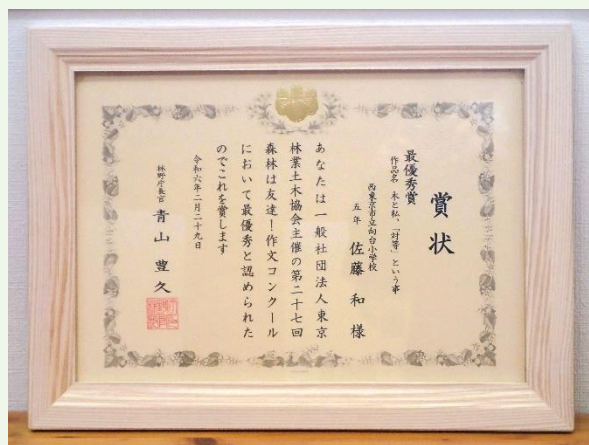 賞状
最優秀賞
作品名 木と私、「対等」という事
西東京市立向台小学校
五年 佐藤 和 様
あなたは一般社団法人東京
林業土木協会主催の第二十七回
森林は友達!作文コンクール
において最優秀と認められた
のでこれを賞します
令和六年二月二十九日
林野庁長官 青山 豊久